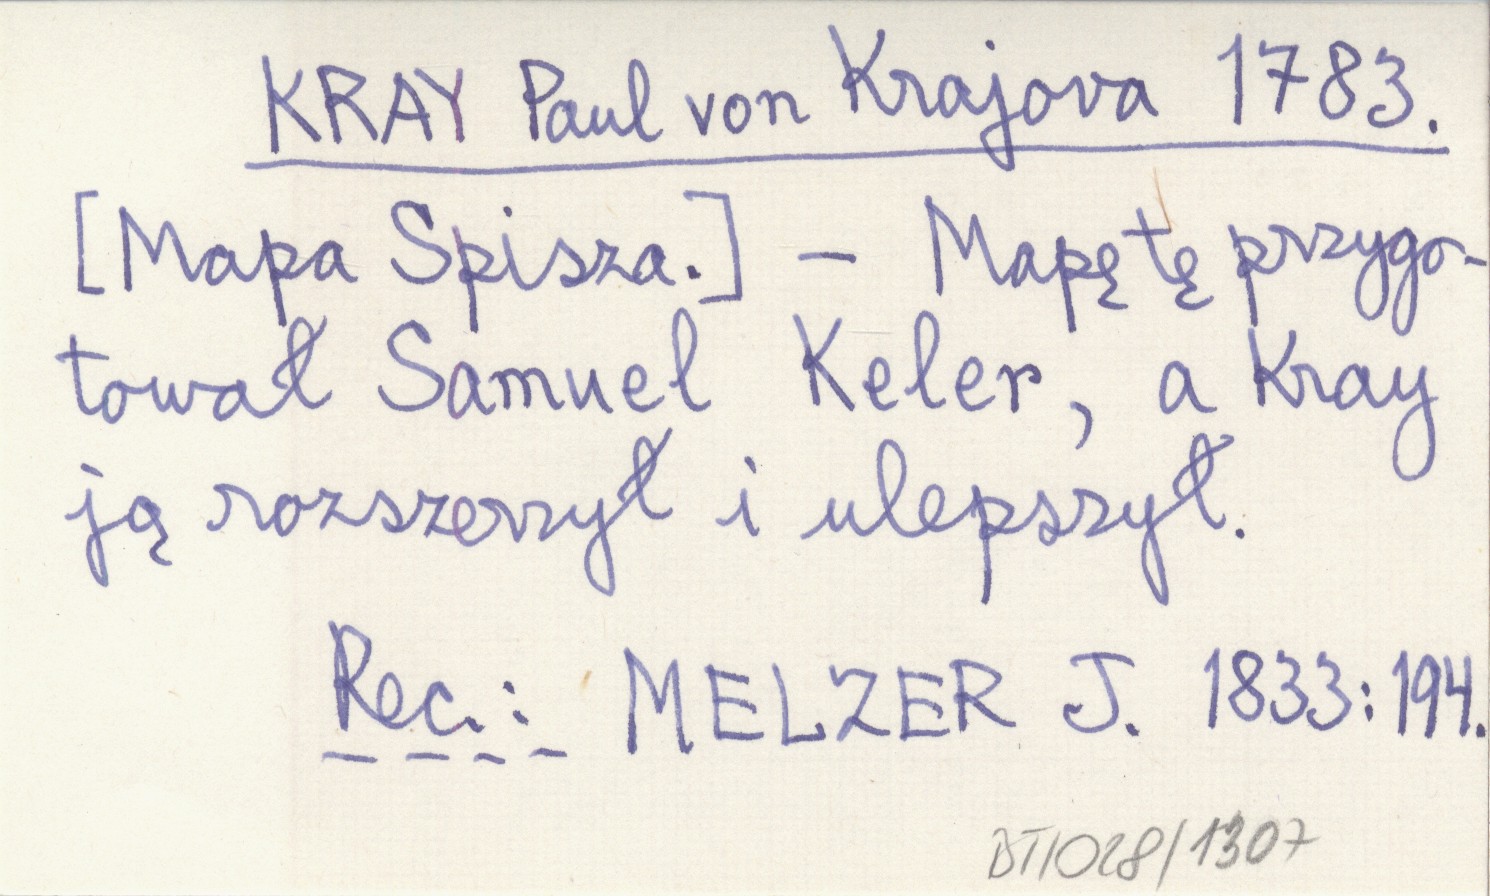 KRAY Paul von Krajova 1783.
[Mapa Spisza.] – Mapę tę przygo-
tował Samuel Keler, a Kray
ją rozszerzył i ulepszył.
Rec.: MELZER J. 1833:194.
DT/028/1307